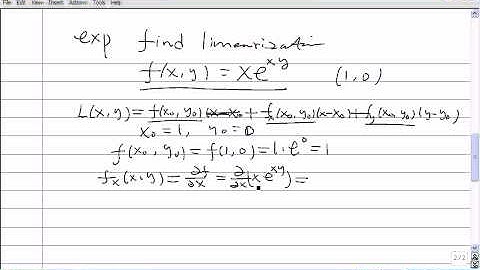 File Edit View Insert Actions Tools Help
exp find linearization
f(x,y) = xe^{xy} (1,0)
L(x,y) = f(x₀,y₀)(x-x₀ + fₓ(x₀,y₀)(x-x₀) + f_y(x₀,y₀)(y-y₀)
x₀ = 1, y₀ = 0
f(x₀,y₀) = f(1,0) = 1·e⁰ = 1
fₓ(x,y) = ∂f/∂x = ∂/∂x(x e^{xy}) =